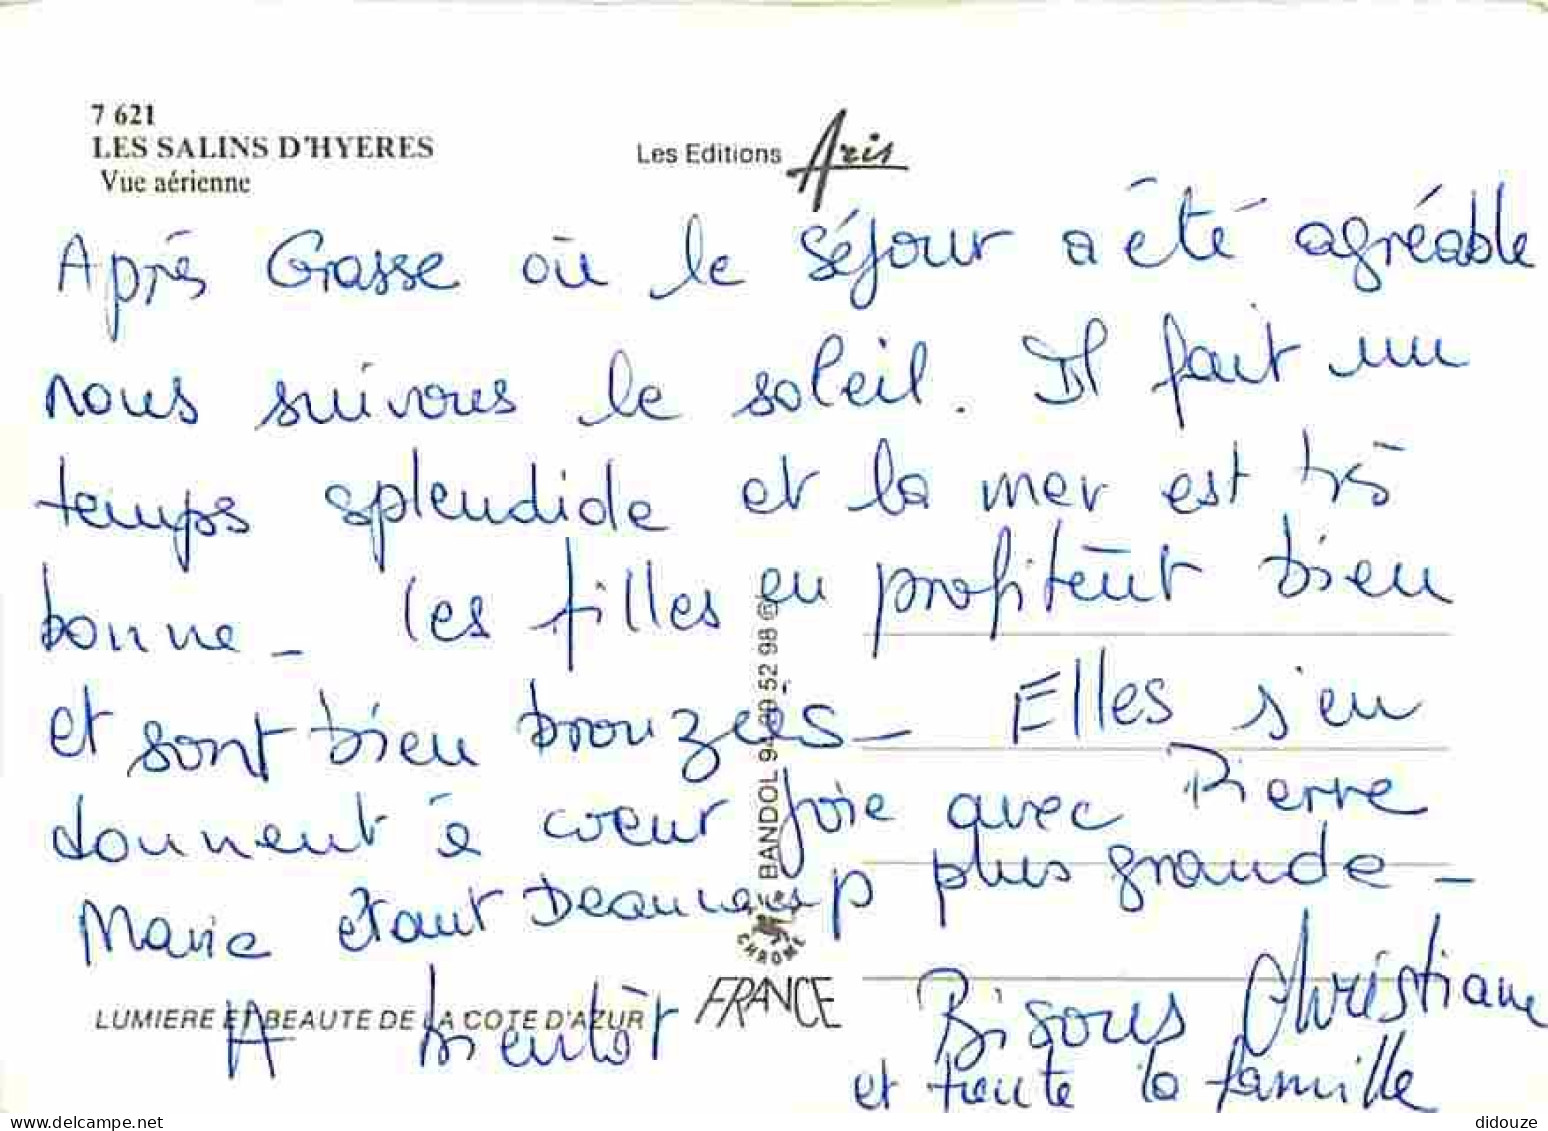 7 621
LES SALINS D'HYERES
Vue aérienne
Les Editions Aris
Après Grasse où le séjour a été agréable
nous suivons le soleil. Il fait un
temps splendide et la mer est très
bonne - les filles en profitent bien
et sont bien bronzées - Elles s'en
donnent à coeur joie avec Pierre
Marie étant beaucoup plus grande -
A bientôt Bisous Christiane
et toute la famille
BANDOL 94 29 52 98 ©
CHROME
FRANCE
LUMIERE ET BEAUTE DE LA COTE D'AZUR
delcampe.net
didouze